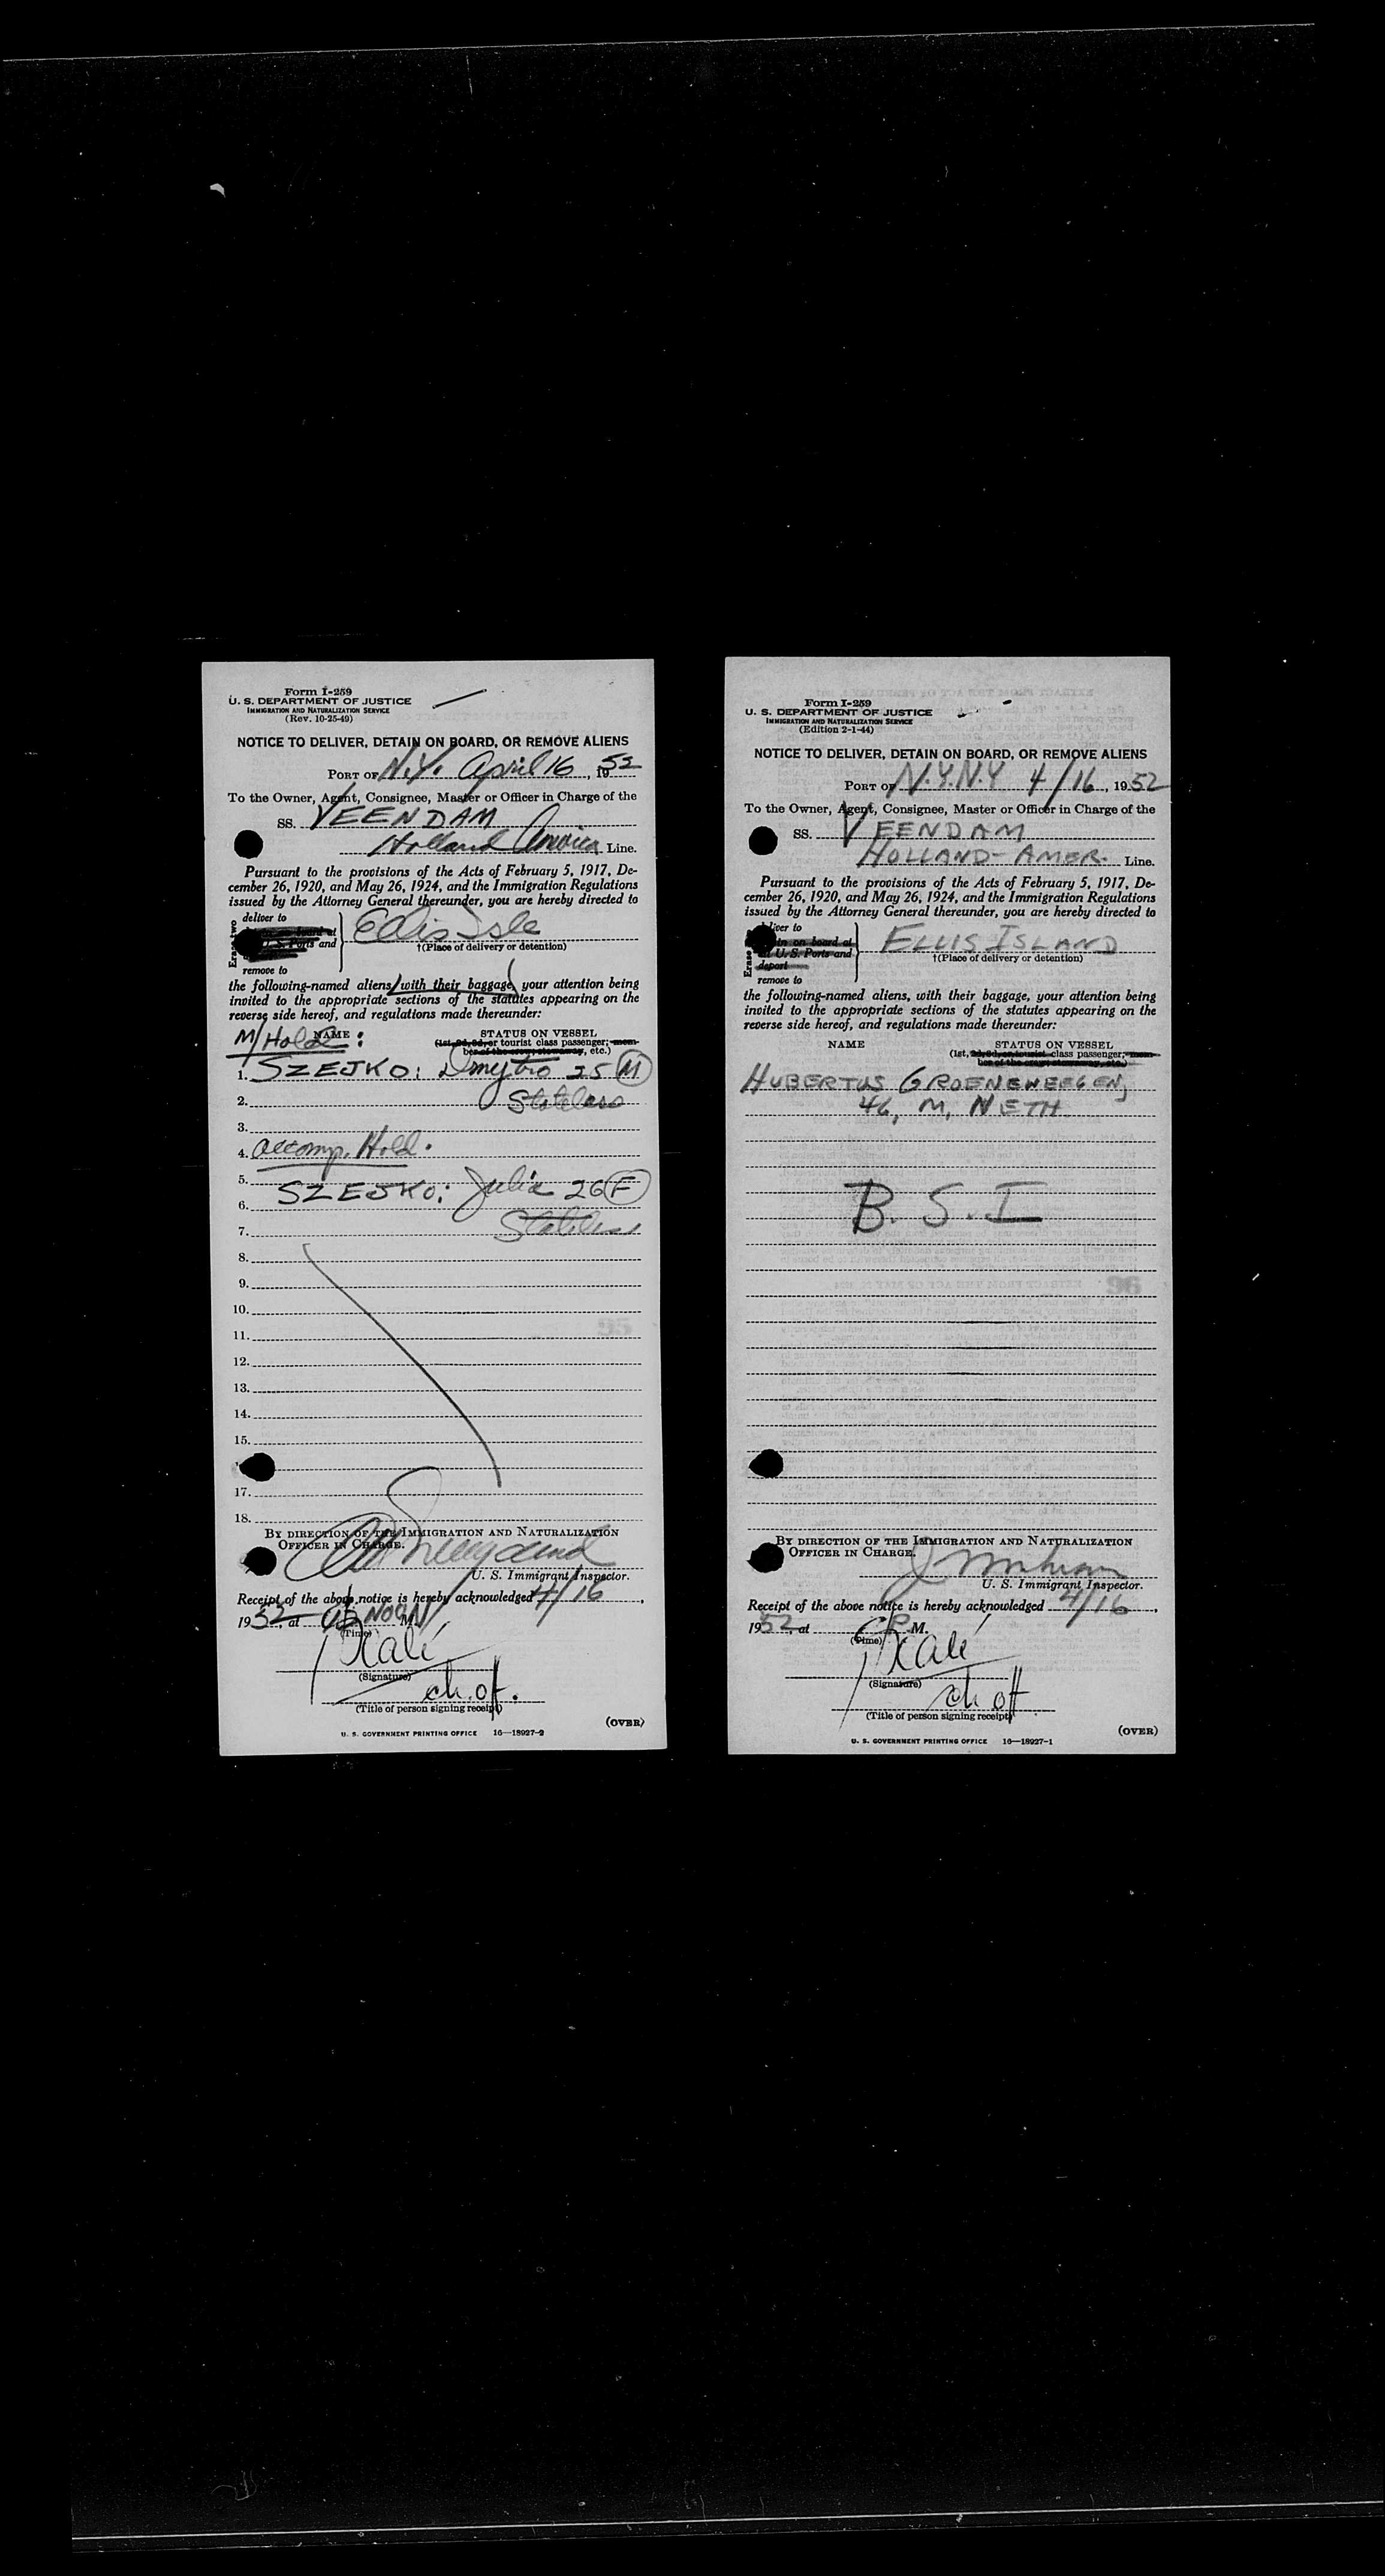 Form I-259
U. S. DEPARTMENT OF JUSTICE
IMMIGRATION AND NATURALIZATION SERVICE
(Rev. 10-25-49)
NOTICE TO DELIVER, DETAIN ON BOARD, OR REMOVE ALIENS
PORT OF N.Y. April 16, 1952
To the Owner, Agent, Consignee, Master or Officer in Charge of the
SS. VEENDAM
Holland America Line.
Pursuant to the provisions of the Acts of February 5, 1917, De-
cember 26, 1920, and May 26, 1924, and the Immigration Regulations
issued by the Attorney General thereunder, you are hereby directed to
Erase two
deliver to
on board at
U. S. Ports and
remove to
Ellis Isle
†(Place of delivery or detention)
the following-named aliens, with their baggage, your attention being
invited to the appropriate sections of the statutes appearing on the
reverse side hereof, and regulations made thereunder:
M/Hold:
NAME
STATUS ON VESSEL
(1st, 2d, 3d, or tourist class passenger; mem-
ber of the crew, stowaway, etc.)
1. SZEJKO: Dmytro 25 M
2. Stateless
3.
4. Accomp. Hold.
5.
SZEJKO: Julia 26 F
6.
7. Stateless
8.
9.
10.
11.
12.
13.
14.
15.
17.
18.
BY DIRECTION OF THE IMMIGRATION AND NATURALIZATION
OFFICER IN CHARGE.
U. S. Immigrant Inspector.
Receipt of the above notice is hereby acknowledged 4/16,
1952, at NOON M.
(Time)
Kalé
(Signature)
ch. off.
(Title of person signing receipt)
(OVER)
U. S. GOVERNMENT PRINTING OFFICE 16—18927-2
95
Form I-259
U. S. DEPARTMENT OF JUSTICE
IMMIGRATION AND NATURALIZATION SERVICE
(Edition 2-1-44)
NOTICE TO DELIVER, DETAIN ON BOARD, OR REMOVE ALIENS
PORT OF N.Y.N.Y 4/16, 1952
To the Owner, Agent, Consignee, Master or Officer in Charge of the
SS. VEENDAM
HOLLAND-AMER. Line.
Pursuant to the provisions of the Acts of February 5, 1917, De-
cember 26, 1920, and May 26, 1924, and the Immigration Regulations
issued by the Attorney General thereunder, you are hereby directed to
Erase
deliver to
in on board at
at U. S. Ports and
deport
remove to
ELLIS ISLAND
†(Place of delivery or detention)
the following-named aliens, with their baggage, your attention being
invited to the appropriate sections of the statutes appearing on the
reverse side hereof, and regulations made thereunder:
NAME
STATUS ON VESSEL
(1st, 2d, 3d, or tourist class passenger; mem-
ber of the crew, stowaway, etc.)
HUBERTUS GROENEWEEGEN,
46, M, NETH
B. S. I
96
BY DIRECTION OF THE IMMIGRATION AND NATURALIZATION
OFFICER IN CHARGE.
U. S. Immigrant Inspector.
Receipt of the above notice is hereby acknowledged 4/16,
1952, at P M.
(Time)
Kalé
(Signature)
ch off
(Title of person signing receipt)
(OVER)
U. S. GOVERNMENT PRINTING OFFICE 16—18927-1